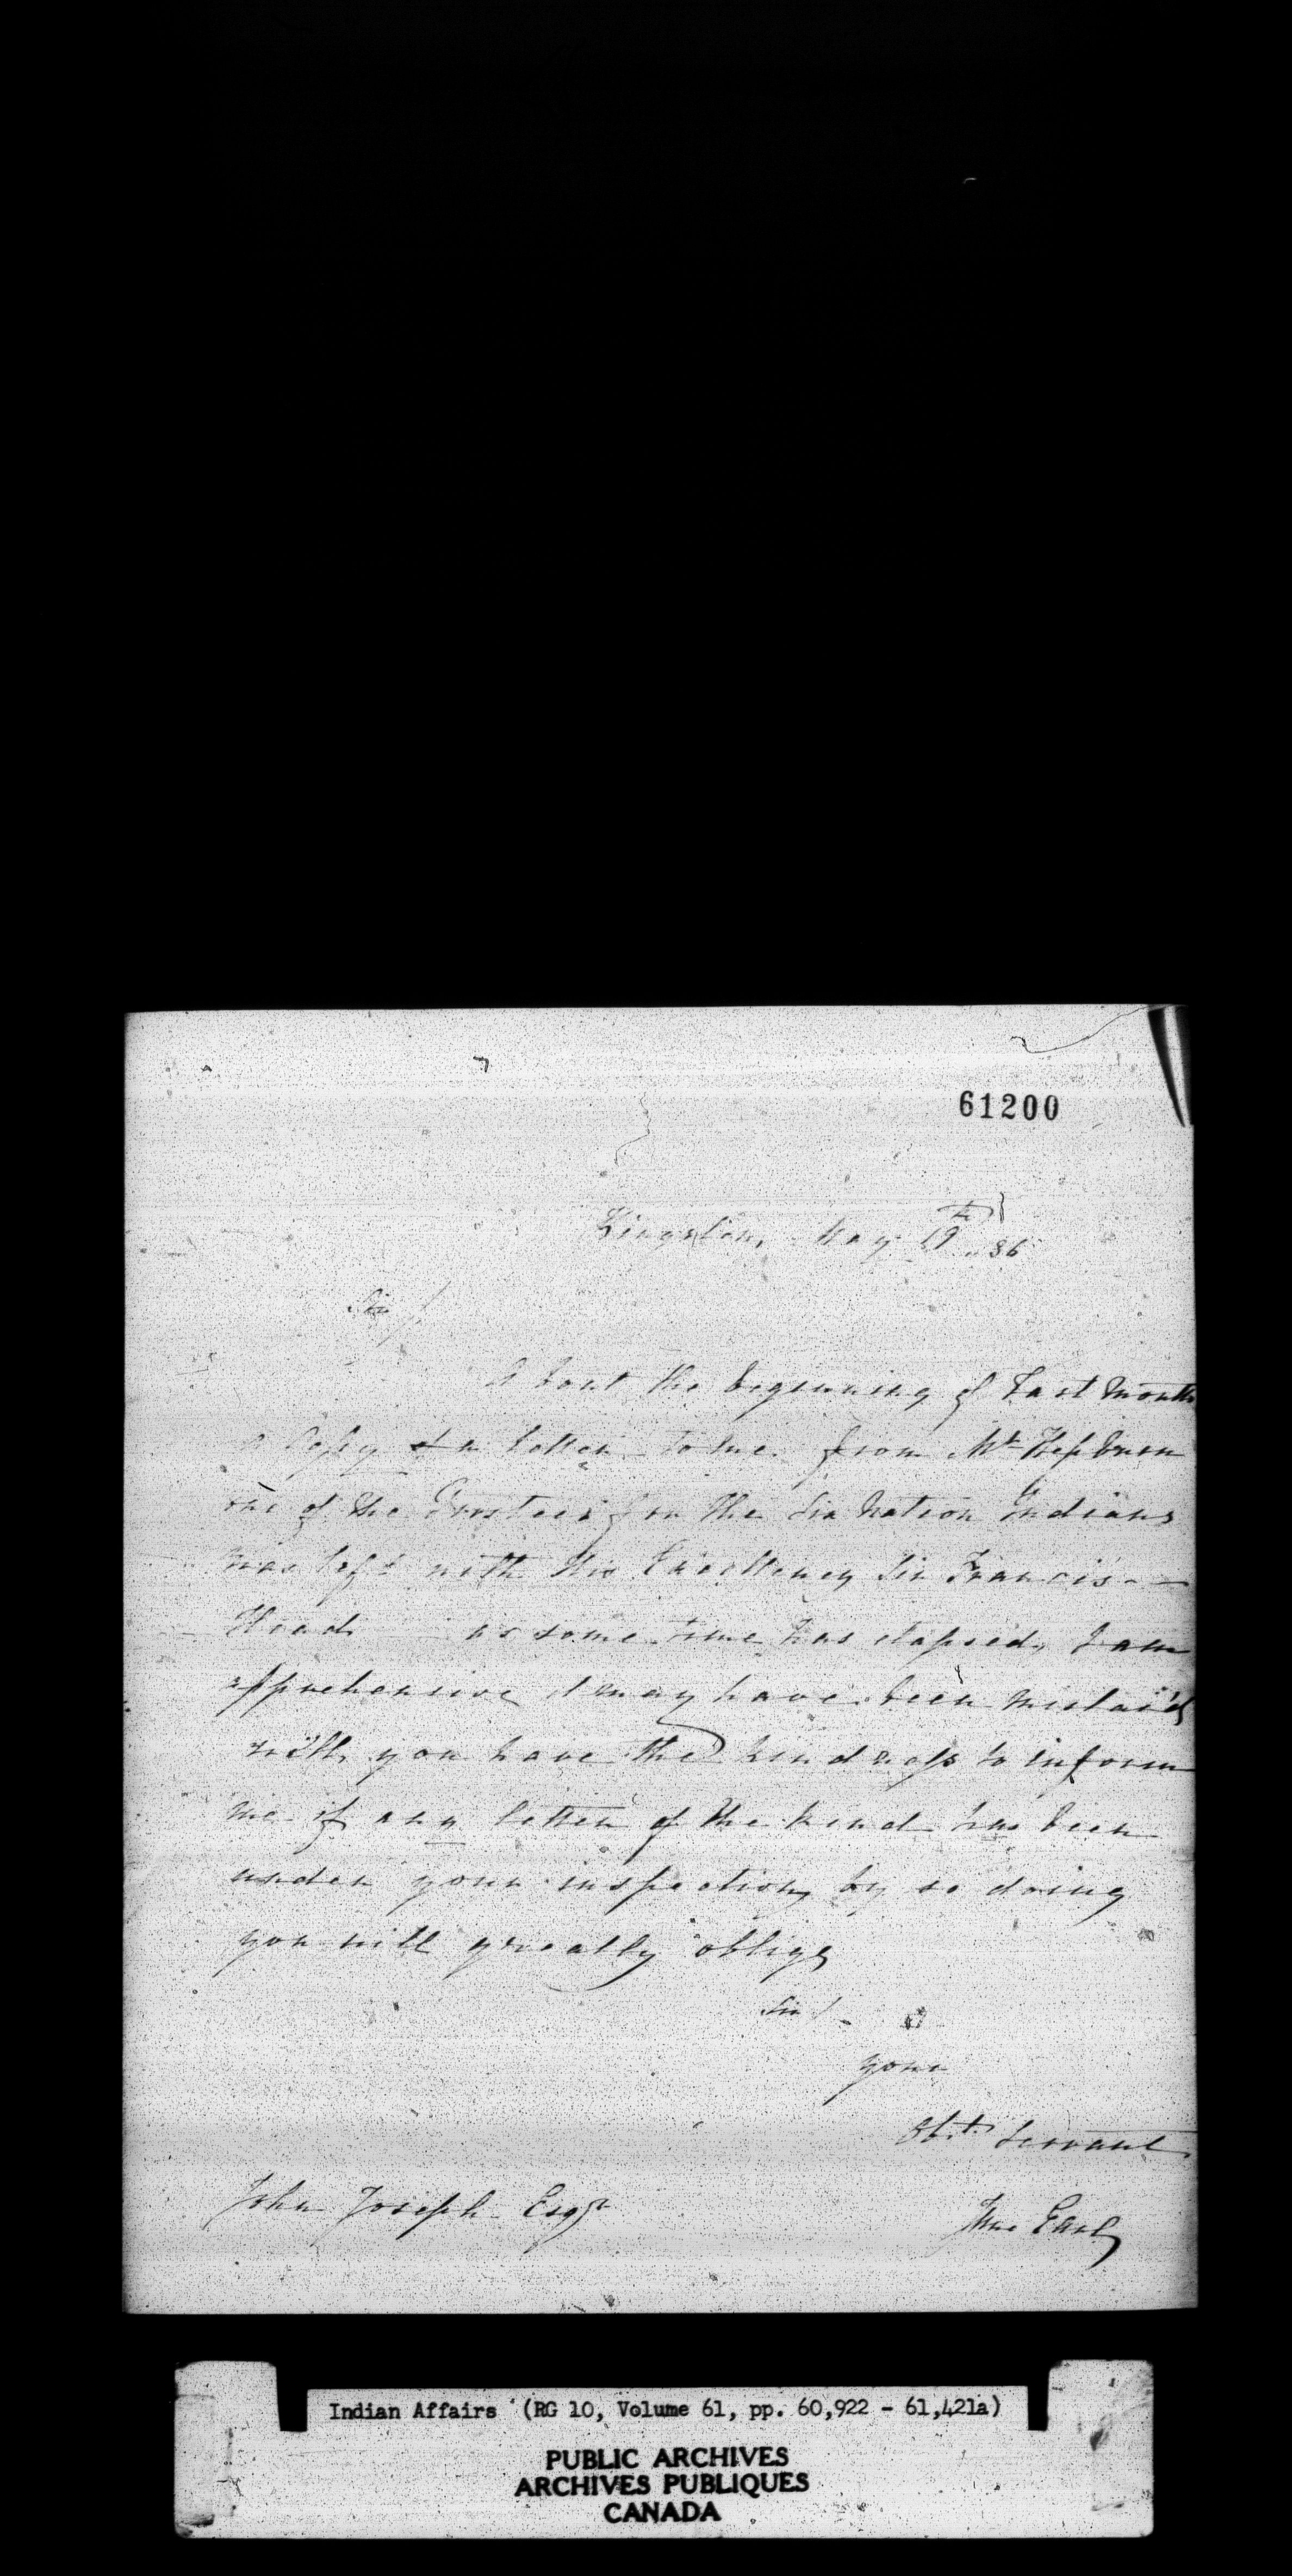 61200
Kingston, May 19th 36
Sir /
About the beginning of Last Month
a Copy of a letter to me from Mr Hepburn
one of the Trustees for the Six Nation Indians
was left with His Excellency Sir Francis
Head as some time has elapsed, I am
apprehensive it may have been mislaid
will you have the kindness to inform
me if any letter of the kind has been
under your inspection, by so doing
you will greatly oblige
Sir /
your
Obt. Servant
John Joseph Esqr
Jno. Earl
Indian Affairs (RG 10, Volume 61, pp. 60,922 - 61,421a)
PUBLIC ARCHIVES
ARCHIVES PUBLIQUES
CANADA